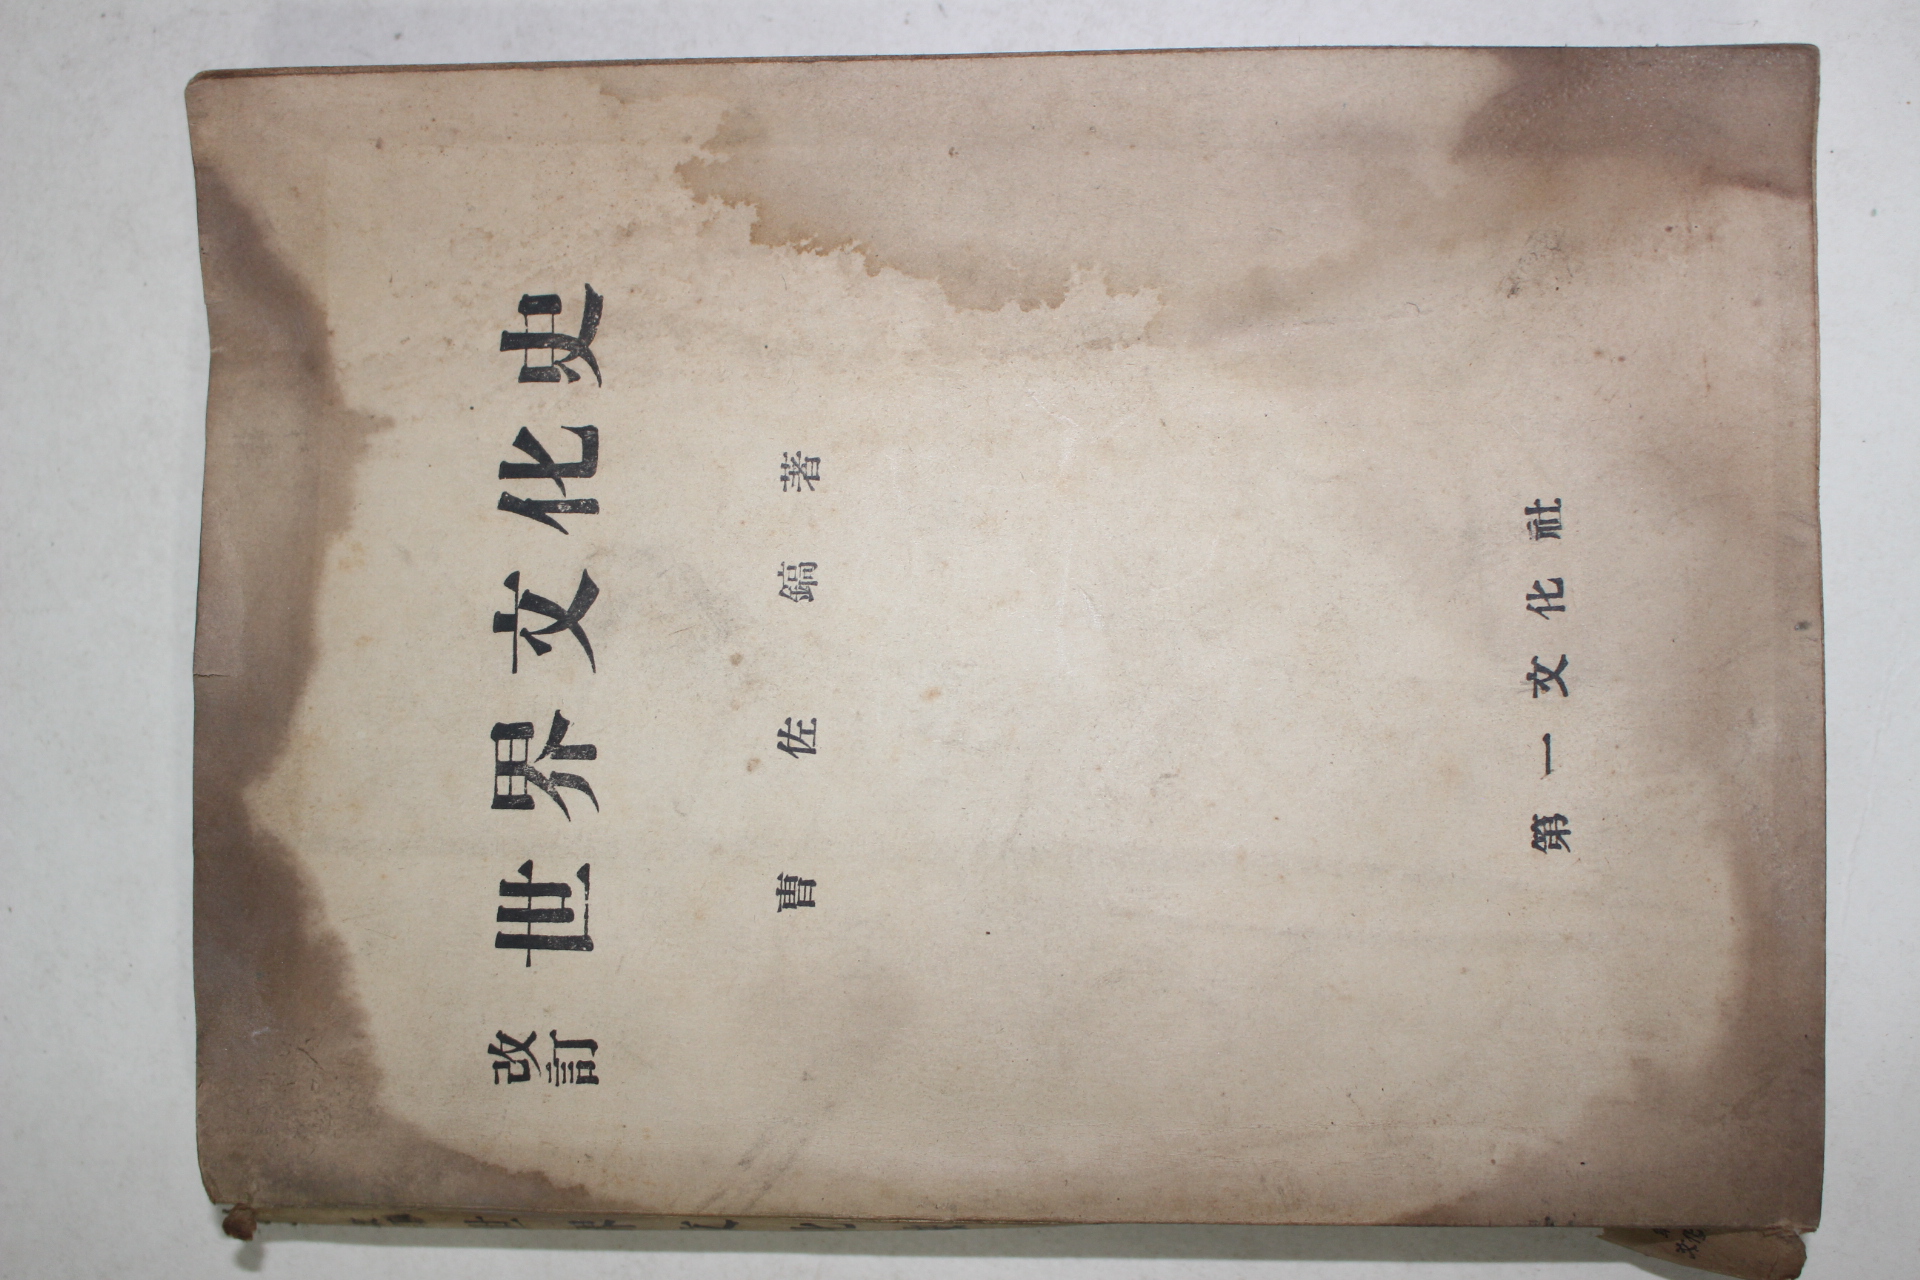 改訂 世界文化史
曹佐鎬 著
第一文化社